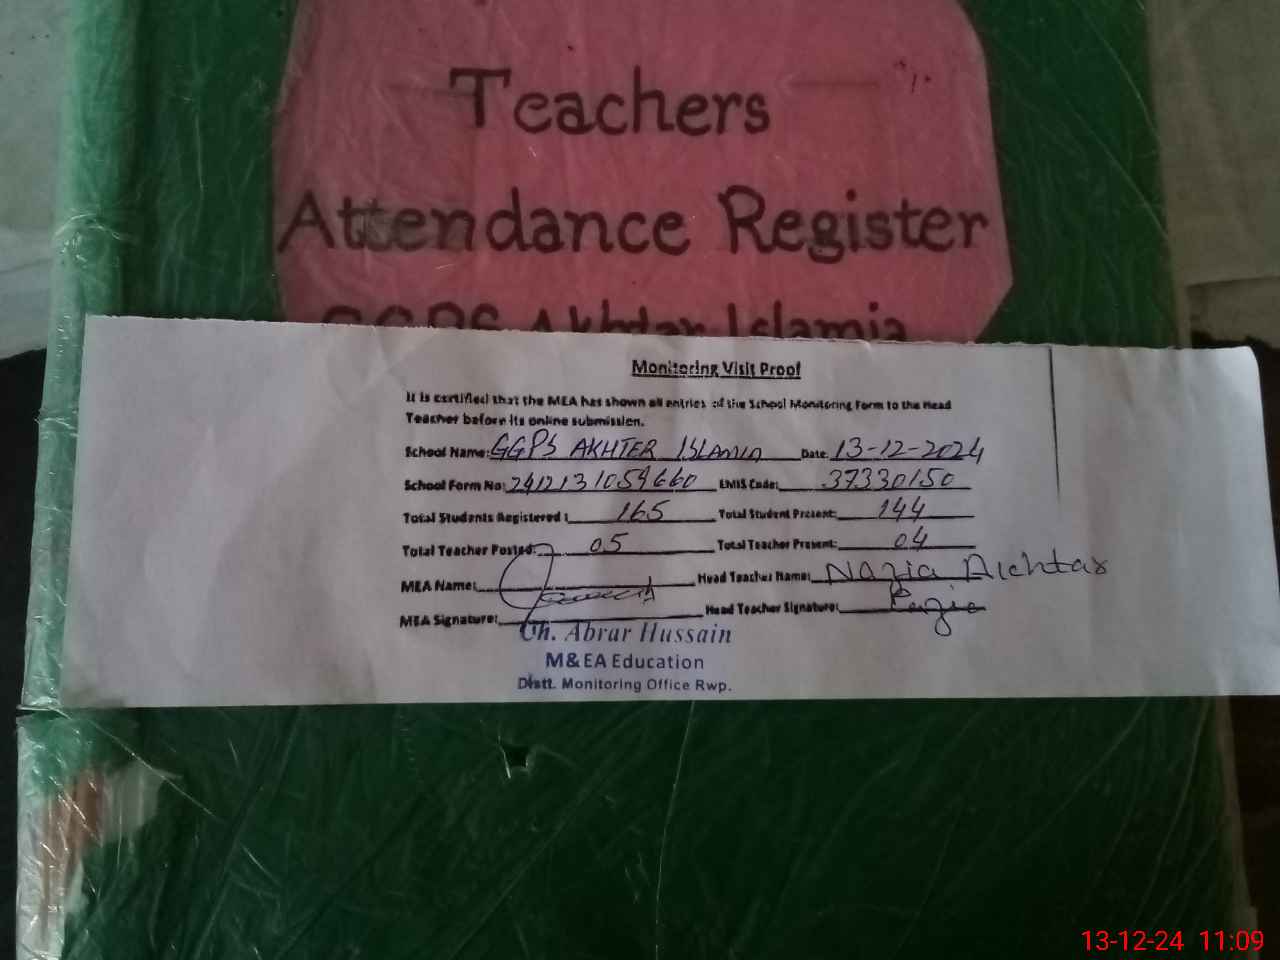 Teachers
Attendance Register
GGPS Akhtar Islamia
Monitoring Visit Proof
It is certified that the MEA has shown all entries of the School Monitoring Form to the Head
Teacher before its online submission.
School Name: GGPS AKHTER ISLAMIA Date: 13-12-2024
School Form No: 2412131059660 EMIS Code: 37330150
Total Students Registered: 165 Total Student Present: 144
Total Teacher Posted: 05 Total Teacher Present: 04
MEA Name: Head Teacher Name: Nazia Akhtar
MEA Signature: Head Teacher Signature:
Ch. Abrar Hussain
M&EA Education
Distt. Monitoring Office Rwp.
13-12-24 11:09